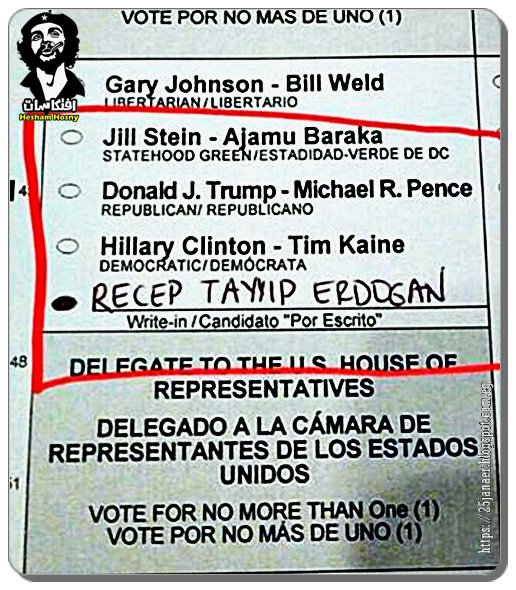 VOTE POR NO MÁS DE UNO (1)
إفتكاسات
Hesham Hosny
Gary Johnson - Bill Weld
LIBERTARIAN/LIBERTARIO
Jill Stein - Ajamu Baraka
STATEHOOD GREEN/ESTADIDAD-VERDE DE DC
Donald J. Trump - Michael R. Pence
REPUBLICAN/ REPUBLICANO
Hillary Clinton - Tim Kaine
DEMOCRATIC/DEMÓCRATA
RECEP TAYYIP ERDOGAN
Write-in / Candidato "Por Escrito"
48
DELEGATE TO THE U.S. HOUSE OF
REPRESENTATIVES
DELEGADO A LA CÁMARA DE
REPRESENTANTES DE LOS ESTADOS
UNIDOS
51
VOTE FOR NO MORE THAN One (1)
VOTE POR NO MÁS DE UNO (1)
https://25janaer.blogspot.com.eg